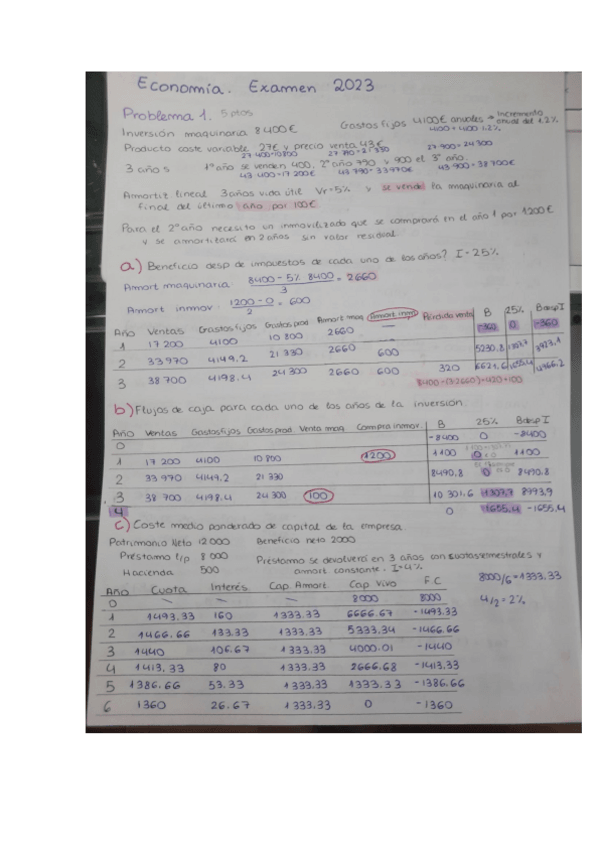 Economía. Examen 2023
Problema 1. 5 ptos
Inversión maquinaria 8400€ Gastos fijos 4100€ anuales → Incremento anual del 1,2%
4100 + 4100·1.2%
Producto coste variable 27€ y precio venta 43€
27·400=10800 27·790=21330 27·900=24300
3 años 1º año se venden 400, 2º año 790 y 900 el 3º año.
43·400=17200€ 43·790=33970€ 43·900=38700€
Amortiz lineal 3 años vida útil Vr=5% y se vende la maquinaria al
final del último año por 100€
Para el 2º año necesito un inmovilizado que se comprará en el año 1 por 1200€
y se amortizará en 2 años sin valor residual
a) Beneficio desp de impuestos de cada uno de los años? I=25%
Amort maquinaria: 8400-5%·8400 / 3 = 2660
Amort inmov: 1200-0 / 2 = 600
Año Ventas Gastos fijos Gastos prod Amort maq Amort inmov Pérdida venta B 25% BdespI
1 17200 4100 10800 2660 — -360 0 -360
2 33970 4149.2 21330 2660 600 5230.8 1307.7 3923.1
3 38700 4198.4 24300 2660 600 320 6621.6 1655.4 4966.2
b) Flujos de caja para cada uno de los años de la inversión.
Año Ventas Gastos fijos Gastos prod Venta maq Compra inmov B 25% BdespI
0 -8400 0 -8400
1 17200 4100 10800 1200 1100 0 1100
2 33970 4149.2 21330 8490.8 0 8490.8
3 38700 4198.4 24300 100 10301.6 1307.7 8993.9
4 0 1655.4 -1655.4
c) Coste medio ponderado de capital de la empresa
Patrimonio Neto 12000 Beneficio neto 2000
Préstamo l/p 8000 Préstamo se devolverá en 3 años con cuotas semestrales y
Hacienda 500 amort constante. I=4% 8000/6=1333.33
4/2=2%
Año Cuota Interés Cap. Amort Cap Vivo F.C
0 — — — 8000 8000
1 1493.33 160 1333.33 6666.67 -1493.33
2 1466.66 133.33 1333.33 5333.34 -1466.66
3 1440 106.67 1333.33 4000.01 -1440
4 1413.33 80 1333.33 2666.68 -1413.33
5 1386.66 53.33 1333.33 1333.33 -1386.66
6 1360 26.67 1333.33 0 -1360